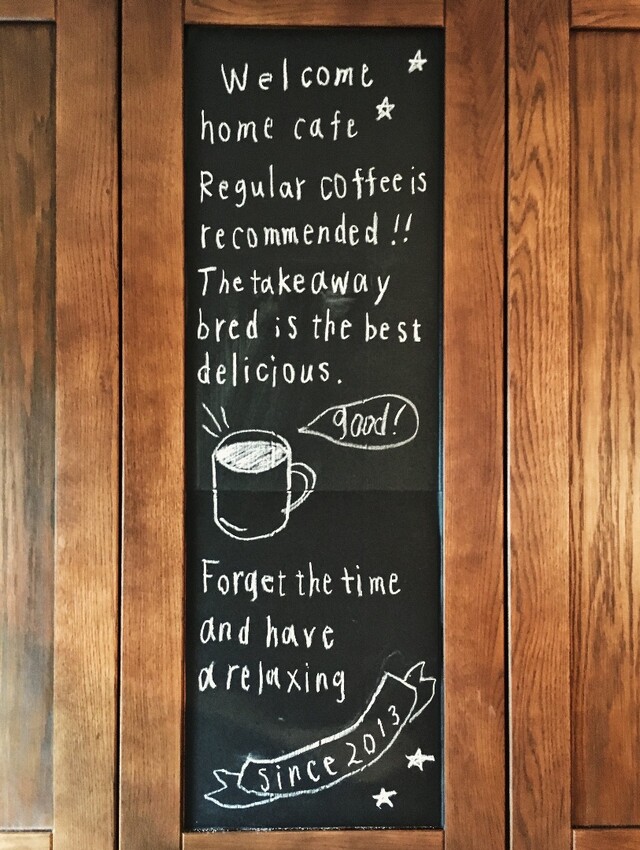 Welcome
home cafe
Regular coffee is
recommended!!
The takeaway
bred is the best
delicious.
good!
Forget the time
and have
a relaxing
since 2013